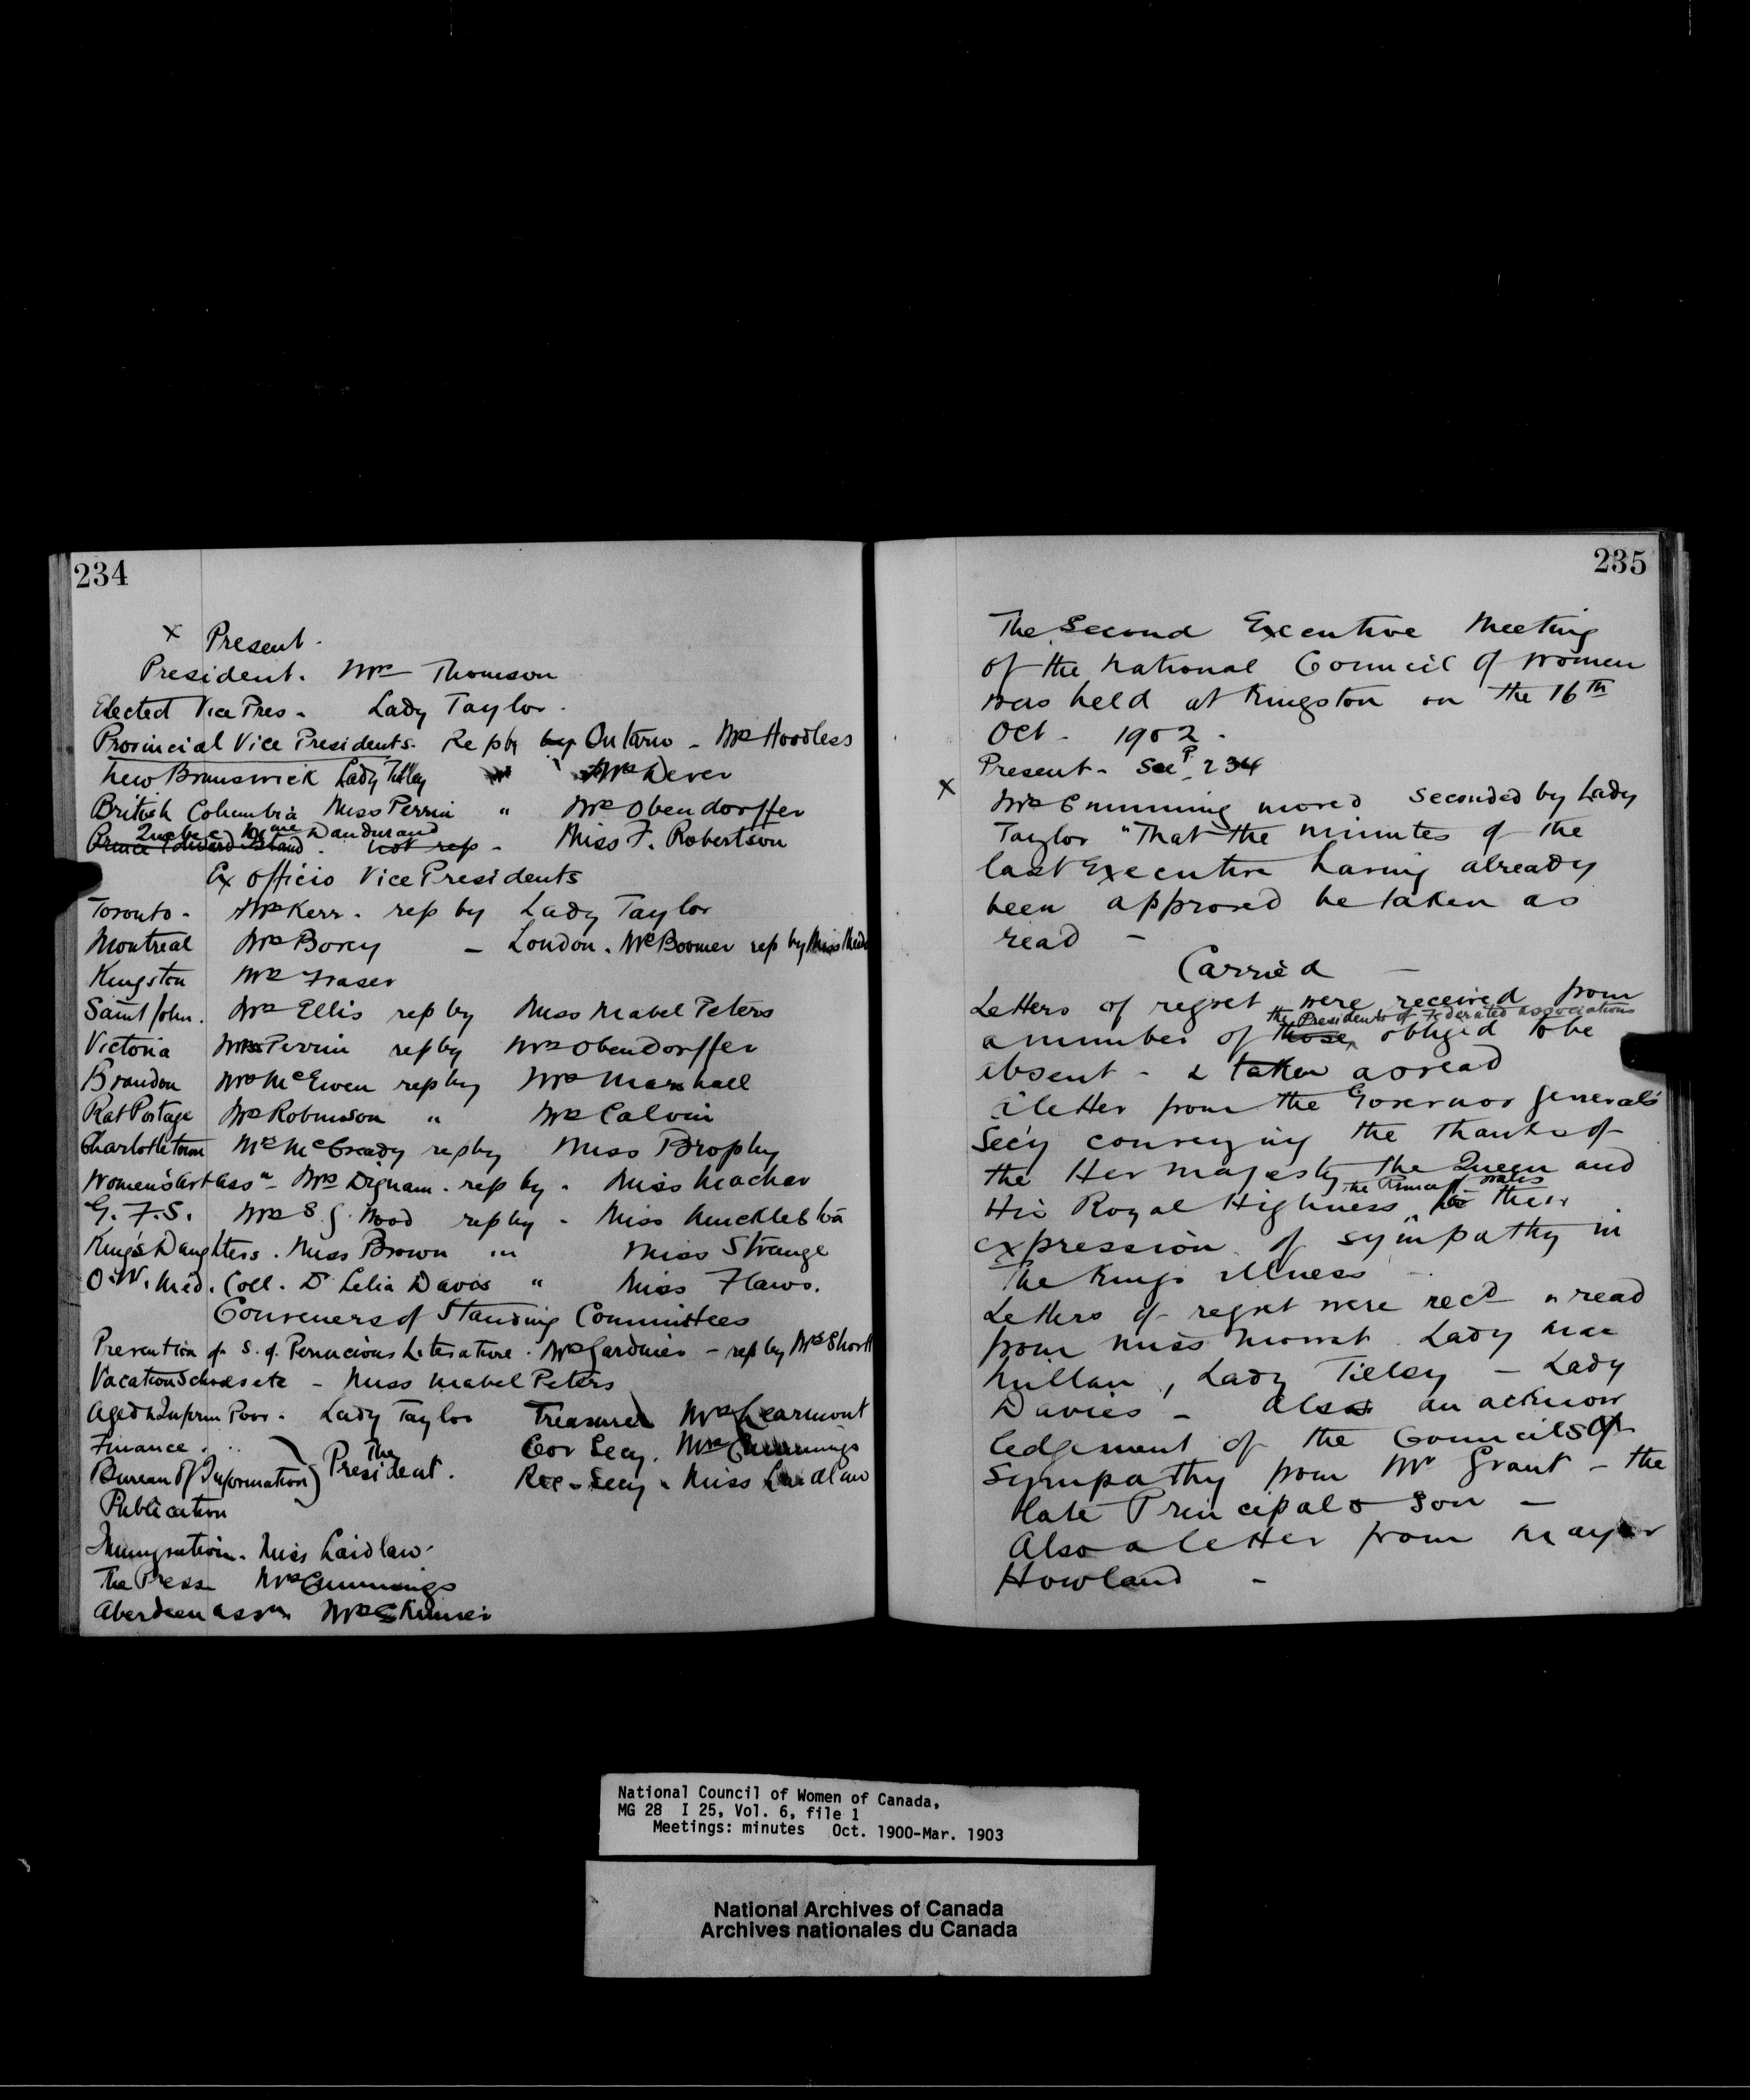 234
x Present.
President. Mrs Thomson
Elected Vice Pres - Lady Taylor.
Provincial Vice Presidents. Rep by by Ontario - Mrs Hoodless
New Brunswick Lady Tilley " Mrs Dever
British Columbia Miss Perrin " Mrs Obendorffer
Quebec Mme Dandurand
Prince Edward Island. not rep - Miss F. Robertson
Ex officio Vice Presidents
Toronto - Mrs Kerr. rep by Lady Taylor
Montreal Mrs Bovey - London. Mrs Boomer rep by Miss
Kingston Mrs Fraser
Saint John. Mrs Ellis rep by Miss Mabel Peters
Victoria Miss Perrin rep by Mrs Obendorffer
Brandon Mrs McEwen rep by Mrs Marshall
Rat Portage Mrs Robinson " Mrs Calvin
Charlottetown Mrs McCready rep by Miss Brophy
Women's Art Assn - Mrs Dignam. rep by - Miss Machar
G. F. S. Mrs S G. Wood rep by - Miss Muckleston
King's Daughters. Miss Brown " Miss Strange
O. W. Med. Coll. Dr Lelia Davis " Miss Flaws.
Conveners of Standing Committees
Prevention of S. of Pernicious Literature. Mrs Gardiner - rep by Mrs Shortt
Vacation Schools etc - Miss Mabel Peters
Aged & Infirm Poor. Lady Taylor Treasurer Mrs Learmont
Finance. The Cor Secy. Mrs Cummings
Bureau of Information) President. Rec-Secy - Miss Laidlaw
Publication
Immigration. Miss Laidlaw.
The Press Mrs Cummings
Aberdeen Assn. Mrs Skinner
235
The Second Executive Meeting
of the National Council of Women
was held at Kingston on the 16th
Oct - 1902.
Present - See P. 234
x Mrs Cumming moved seconded by Lady
Taylor "That the minutes of the
last Executive having already
been approved be taken as
read -
Carried -
Letters of regret were received from
the Presidents of Federated associations
a number of those obliged to be
absent - & taken as read
A letter from the Governor General's
Sec'y conveying the thanks of
the Her Majesty the Queen and
the Prince of Wales
His Royal Highness for their
expression of sympathy in
the King's illness -
Letters of regret were recd & read
from Miss Mowat Lady Mac
Millan, Lady Tilley - Lady
Davies - Also an acknow
ledgement of the Councils of
Sympathy from Mr Grant - the
late Principal's son -
Also a letter from Mayor
Howland -
National Council of Women of Canada,
MG 28 I 25, Vol. 6, file 1
Meetings: minutes Oct. 1900-Mar. 1903
National Archives of Canada
Archives nationales du Canada